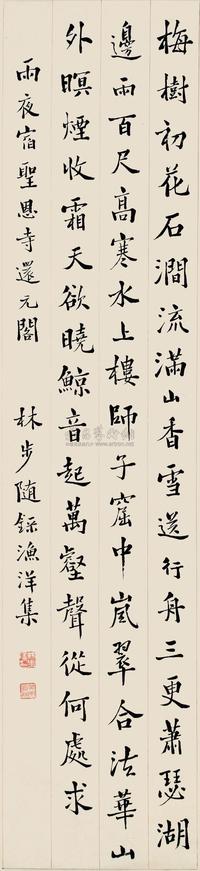 梅樹初花石澗流滿山香雪送行舟三更蕭瑟湖
邊雨百尺高寒水上樓師子窟中嵐翠合法華山
外暝煙收霜天欲曉鯨音起萬壑聲從何處求
雨夜宿聖恩寺還元閣 林步隨錄漁洋集